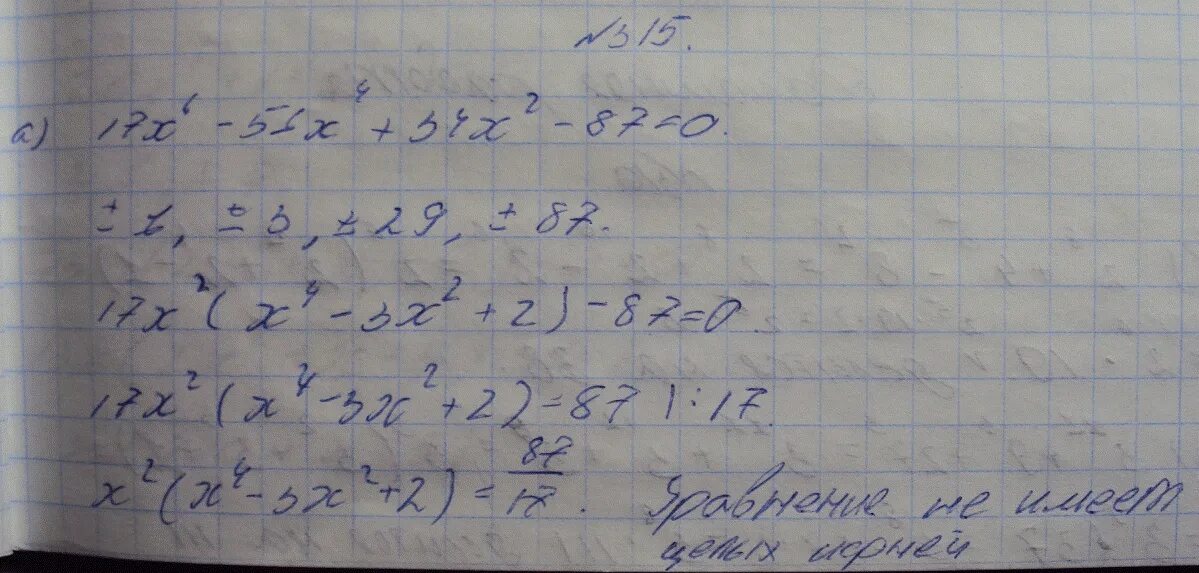 №315.
а) 17x⁶ - 51x⁴ + 34x² - 87 = 0.
± 1, ± 3, ± 29, ± 87.
17x² (x⁴ - 3x² + 2) - 87 = 0.
17x² (x⁴ - 3x² + 2) = 87 | : 17.
x² (x⁴ - 3x² + 2) = 87/17. Уравнение не имеет
целых корней